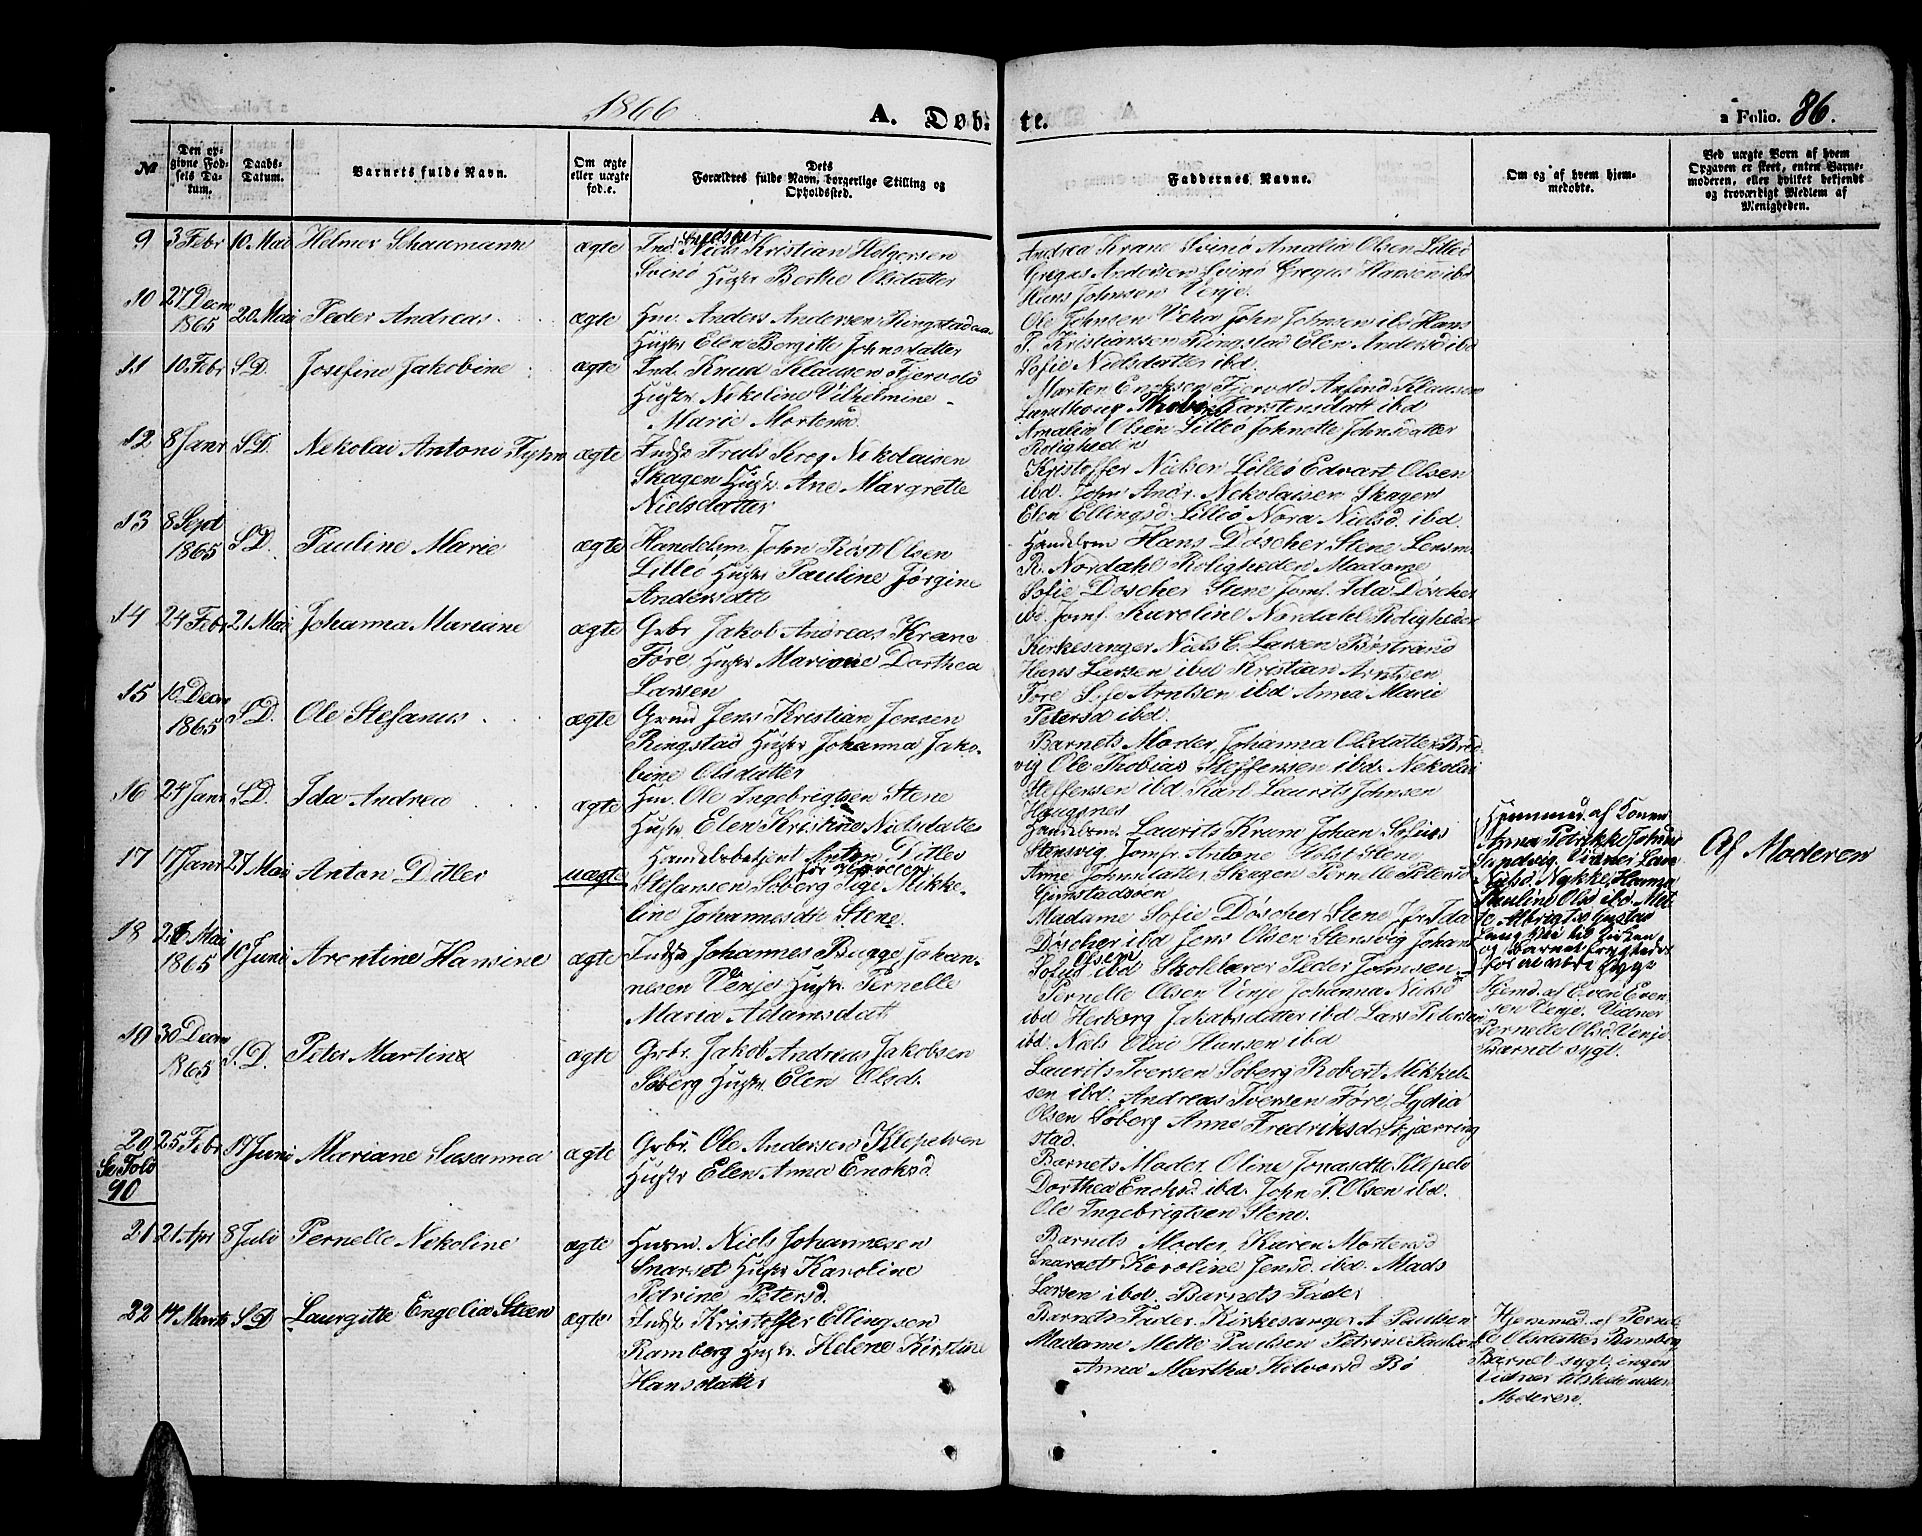 1866
A. Døb- te.
a Folio. 86.
No
Den opgivne Fødsels Datum.
Daabs-Datum.
Barnets fulde Navn.
Om ægte eller uægte fød.e.
Dets Forældres fulde Navn, borgerlige Stilling og Opholdssted.
Faddernes Navne.
Om og af hvem hjemmedøbte.
Ved uægte Børn af hvem Opgaven er skeet, enten Barnemoderen, eller hvilket bekjendt og troværdigt Medlem af Menigheden.
9 3 Febr 10. Mai Helmer Schaumann ægte
Niels Kristian Holgersen
Svinø Hustr Berthe Olsdatter
Andrea Krane Svinø Amalia Olsen Lilleø
Gregus Andersen Svinø Gregus Hansen ibd
Hans Johnsen Venje.
10 27 Decm 1865 20. Mai Peder Andreas. ægte
Hm. Anders Andersen Ringstadaa
Hustr Elen Bergitte Johnsdatter
Ole Johnsen Vika John Johnsen ibd Hans
P. Kristiansen Ringstad Elen Andersd ibd
Sofie Nielsdatter ibd.
11 10. Febr S.D. Josefine Jakobine ægte
Ind. Knud Klausen Fjervold
Hustr Nekoline Vilhelmine
Marie Mortensd.
Marten Enoksen Fjervold Anfind Klausen
Karstensdatt ibd
Amalia Olsen Lilleø Johnette Johnsdatter
Roligheden
12 8 Janr S.D. Nekolai Antoni Fyhn ægte
Inds Truls Krog Nekolaisen
Skagen Hustr. Ane Margrette
Nielsdatter
Kristoffer Nielsen Lilleø Edvart Olsen
ibd. John Andr. Nekolaisen Skagen
Elen Ellingsd. Lilleø Nora Nielsd. ibd.
13 8 Sept 1865 S.D. Pauline Marie ægte
Handelsm. John Røst Olsen
Lilleø Hustr Pauline Jørgine
Andersdtt
Handelsm Hans Døscher Stene Lensm.
R. Nordahl Roligheden Madame
Sofie Døscher Stene Jomf. Ida Døscher
ibd Jomf. Karoline Nordahl Roligheden
14 24 Febr 21 Mai Johanna Mariane ægte
Grbr Jakob Andreas Krane
Føre, Hustr Mariane Dorthea
Larsen
Kirkesanger Niels C. Larsen Børstrand
Hans Larsen ibd Kristian Arntsen
Føre Arntsen ibd Anna Marie
Petersd ibd.
15 10 Decm 1865 S.D. Ole Stefanus. ægte
Grmd Jens Kristian Jensen
Ringstad Hustr Johanna Jako-
bine Olsdatter
Barnets Moder, Johanna Olsdatter Bred-
vig Ole Thobias Steffensen ibd. Nekolai
Steffensen ibd Karl Laurits Johnsen
Haugsnes
16 24 Janr S.D. Ida Andrea ægte
Hm. Ole Ingebrigtsen Stene
Hustr. Elen Kristine Nielsdatter
Handelsm: Laurits Kram Johan Sofius
Stensvig Jomfr. Antone Holst Stene
Anne Johnsdatter Skagen Pernelle Petersd
Grimstadsøen
17 17 Janr 27 Mai Anton Ditlev uægte
Handelsbetjent Anton Ditlev
Stefansen Søberg Pige Mikke-
line Johannesdtt Stene.
Madame Sofie Døscher Stene Jfr Ida
Døscher ibd Jens Olsen Stensvig Johan
Sofius Olsen ibd Skolelærer Peder Jørnsen
Hjemmed. af Konen
Anna Petrikke Johans
Sandvig. Vidner Lars
Nielsd. Nykke, Hanna
Pauline Olsd ibd.
Lang Vei til Kirken
og Barnet frygtedes
for at være sygt
Af Moderen
18 26 Mai 1865 10 Juni Arentine Hansine ægte
Indst Johannes Bugge Johan-
nesen Venje Hustr. Pernelle
Maria Adamsdatt
Pernelle Olsen Venje Johanna Nielsd
ibd Herborg Jakobsdatter ibd Lars Petersen
ibd. Niels Olai Hansen ibd
Hjemd. af Even Even-
sen Venje. Vidner
Pernelle Olsd Venje
Barnet sygt.
19 30 Decm 1865 S.D. Peter Martin ægte
Grbr. Jakob Andreas Jakobsen
Søberg Hustr. Elen Olsd.
Laurits Iversen Søberg Robert Mikkel-
sen ibd. Andreas Iversen Føre, Lydia
Olsen Søberg Anne Fredriksdtt Skjærring
stad.
20 25 Febr 17 Juni Mariane Susanna ægte
Se Fold 90
Grbr. Ole Andersen Klepelven
Hustr Elen Anna Enoksd.
Barnets Moder. Oline Jonasdtt Klepelv
Dorthea Enoksd ibd. John P. Olsen ibd.
Ole Ingebrigtsen Stene.
21 21. Apr 8 Juli Pernelle Nekoline ægte
Husm. Niels Johannesen
Snarset Hustr Karoline
Petrine Petersd.
Barnets Moder, Karen Mortensd
Snarset Karoline Jensd. ibd. Mads
Larsen ibd. Barnets Fader
22 14 Marts S.D Laurgitte Engelia Steen ægte
Indst Kristoffer Ellingsen
Ramberg Hustr. Helene Kirstine
Hansdatter
Barnets Fader Kirkesanger A Paulsen
Madame Mette Paulsen Petrine Paulsen
Anna Martha Halvorsd Bø
Hjemmed. af Pernel
le Olsdatter Ramberg
Barnet sygt, ingen
Vidner tilstede uden
Moderen.